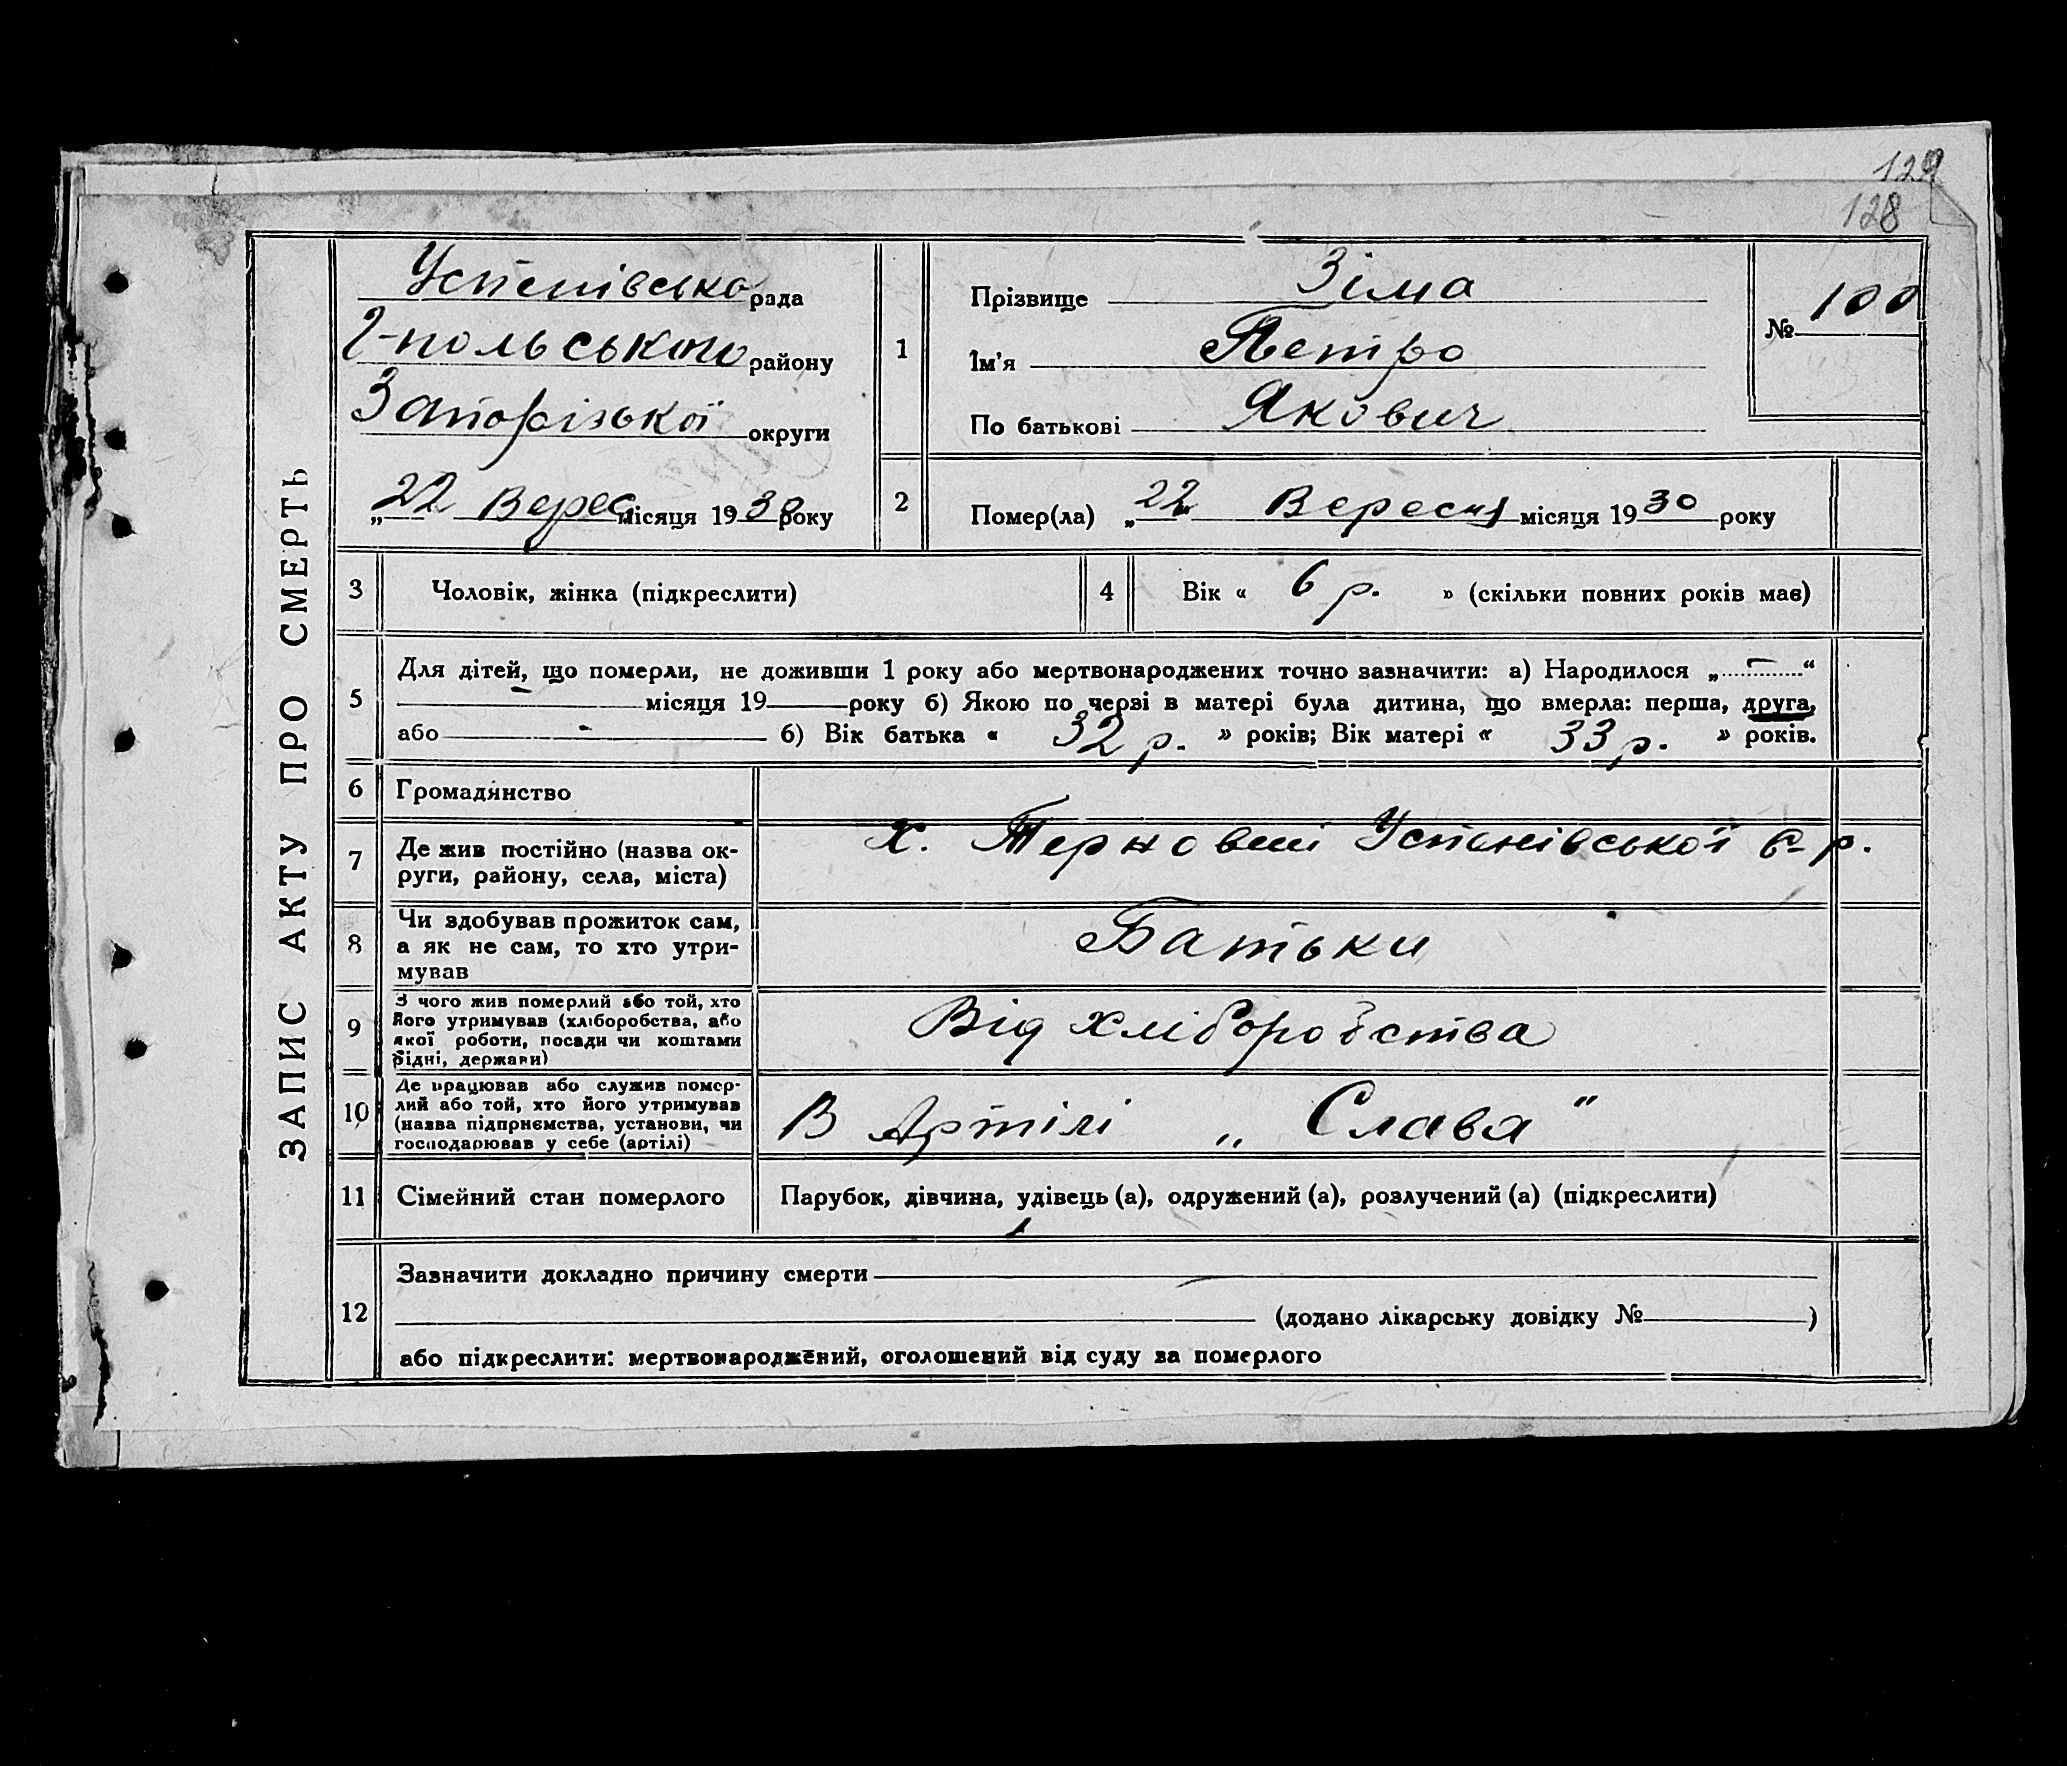 129
128
ЗАПИС АКТУ ПРО СМЕРТЬ
Успенівська рада
Г-польського району
Запорізької округи
„22 Верес. місяця 1930 року
1
Прізвище Зіма
Ім'я Петро
По батькові Якович
№ 100
2
Помер(ла) „22" Вересня місяця 1930 року
3 Чоловік, жінка (підкреслити)
4 Вік « 6 р. » (скільки повних років має)
5
Для дітей, що померли, не доживши 1 року або мертвонароджених точно зазначити: а) Народилося „—“
— місяця 19 року б) Якою по черзі в матері була дитина, що вмерла: перша, друга,
або - б) Вік батька « 32 р. » років; Вік матері « 33 р. » років.
6 Громадянство
7 Де жив постійно (назва ок-
руги, району, села, міста)
х. Терновий Успенівської с-р.
8 Чи здобував прожиток сам,
а як не сам, то хто утри-
мував
Батьки
9 З чого жив померлий або той, хто
його утримував (хліборобства, або
якої роботи, посади чи коштами
рідні, держави)
Від хліборобства
10 Де працював або служив помер-
лий або той, хто його утримував
(назва підприємства, установи, чи
господарював у себе (артілі)
В Артілі „ Слава "
11 Сімейний стан померлого
Парубок, дівчина, удівець (а), одружений (а), розлучений (а) (підкреслити)
12
Зазначити докладно причину смерти
(додано лікарську довідку № )
або підкреслити: мертвонароджений, оголошений від суду за померлого